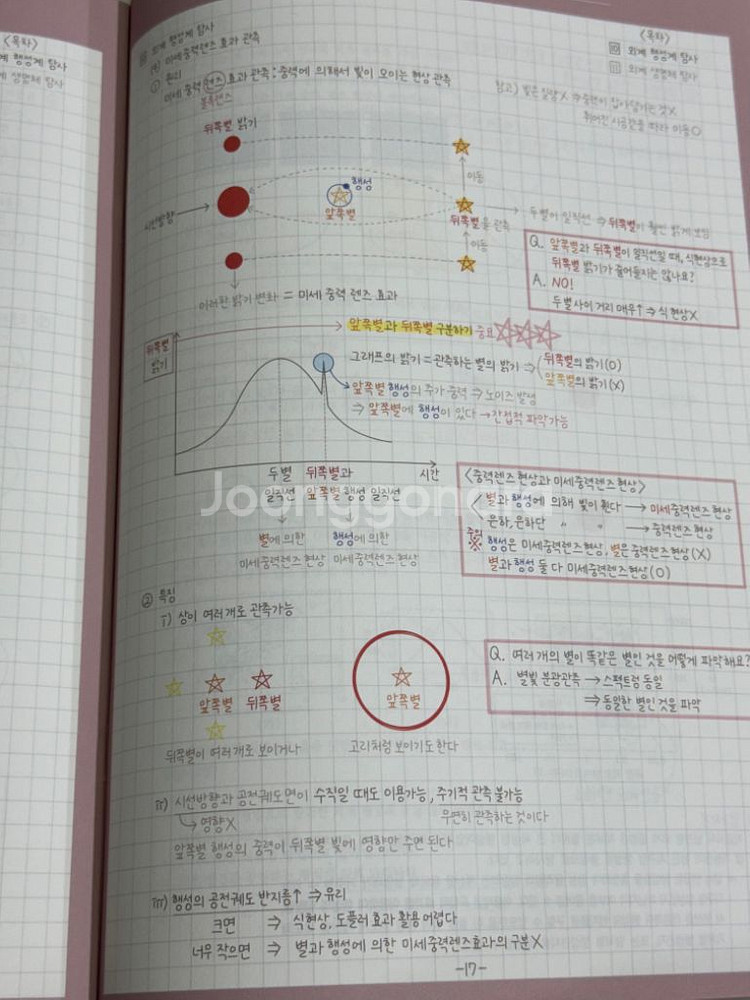 <목차>
외계 행성계 탐사
외계 생명체 탐사
외계 행성계 탐사
(4) 미세중력렌즈 효과 관측
① 원리
미세 중력 렌즈 효과 관측 : 중력에 의해서 빛이 모이는 현상 관측
볼록렌즈
<목차>
외계 행성계 탐사
외계 생명체 탐사
참고) 빛은 질량X ⇒ 중력이 잡아당기는 것X
휘어진 시공간을 따라 이동O
뒤쪽별 밝기
이동
행성
앞쪽별
시선방향
뒤쪽별을 관측
이동
두별이 일직선 ⇒ 뒤쪽별이 훨씬 밝게 보임
이러한 밝기 변화 = 미세 중력 렌즈 효과
Q. 앞쪽별과 뒤쪽별이 일직선일 때, 식현상으로
뒤쪽별 밝기가 줄어들지는 않나요?
A. NO!
두별 사이 거리 매우↑ ⇒ 식 현상X
앞쪽별과 뒤쪽별 구분하기 중요
뒤쪽별
밝기
그래프의 밝기 = 관측하는 별의 밝기 ⇒ 뒤쪽별의 밝기(O)
앞쪽별의 밝기(X)
앞쪽별 행성의 추가 중력 ⇒ 노이즈 발생
⇒ 앞쪽별에 행성이 있다 → 간접적 파악 가능
시간
두별
일직선
뒤쪽별과
앞쪽별 행성 일직선
별에 의한
미세중력렌즈 현상
행성에 의한
미세중력렌즈 현상
<중력렌즈 현상과 미세중력렌즈 현상>
별과 행성에 의해 빛이 휜다 → 미세중력렌즈 현상
은하, 은하단 〃 〃 → 중력렌즈 현상
주의
※ 행성은 미세중력렌즈현상, 별은 중력렌즈 현상(X)
별과 행성 둘 다 미세중력렌즈현상(O)
Joonggonara
② 특징
i) 상이 여러 개로 관측가능
앞쪽별 뒤쪽별
앞쪽별
뒤쪽별이 여러개로 보이거나
고리처럼 보이기도 한다
Q. 여러 개의 별이 똑같은 별인 것을 어떻게 파악해요?
A. 별빛 분광관측 → 스펙트럼 동일
⇒ 동일한 별인 것을 파악
ii) 시선방향과 공전궤도면이 수직일 때도 이용가능, 주기적 관측 불가능
영향X
우연히 관측하는 것이다
앞쪽별 행성의 중력이 뒤쪽별 빛에 영향만 주면 된다
iii) 행성의 공전궤도 반지름↑ ⇒ 유리
크면 ⇒ 식현상, 도플러 효과 활용 어렵다
너무 작으면 ⇒ 별과 행성에 의한 미세중력렌즈효과의 구분X
-17-